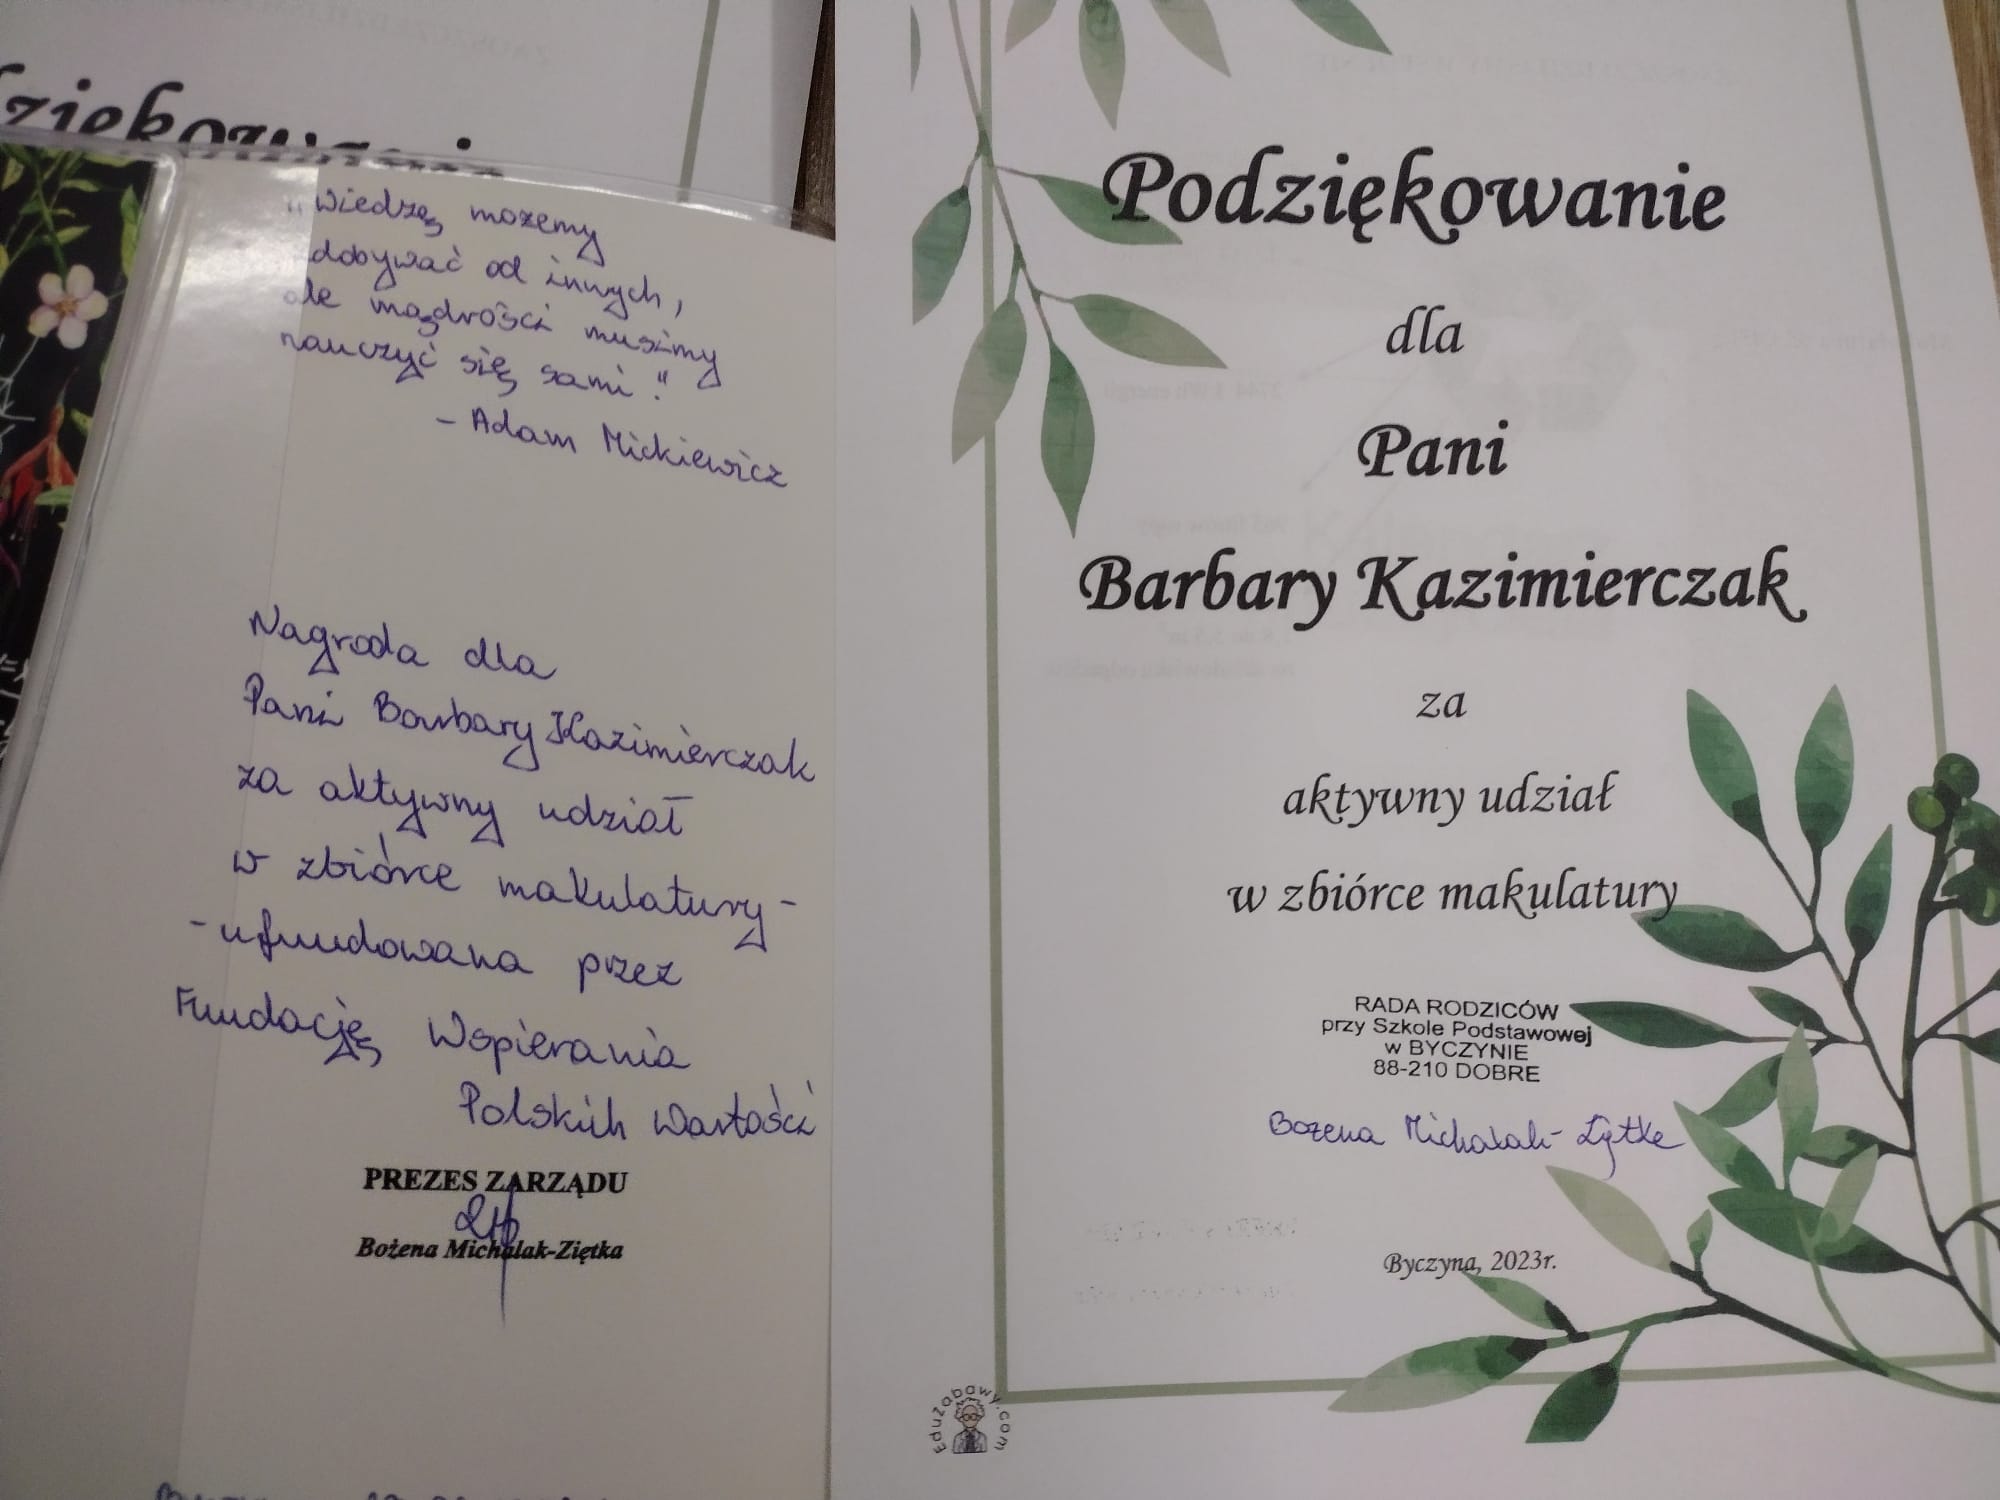 „Wiedzę możemy
zdobywać od innych,
ale mądrości musimy
nauczyć się sami."
- Adam Mickiewicz
Nagroda dla
Pani Barbary Kazimierczak
za aktywny udział
w zbiórce makulatury -
- ufundowana przez
Fundację Wspierania
Polskich Wartości
PREZES ZARZĄDU
Bożena Michalak-Ziętka
Podziękowanie
dla
Pani
Barbary Kazimierczak
za
aktywny udział
w zbiórce makulatury
RADA RODZICÓW
przy Szkole Podstawowej
w BYCZYNIE
88-210 DOBRE
Bożena Michalak-Ziętka
Byczyna, 2023r.
EduZabawy.com